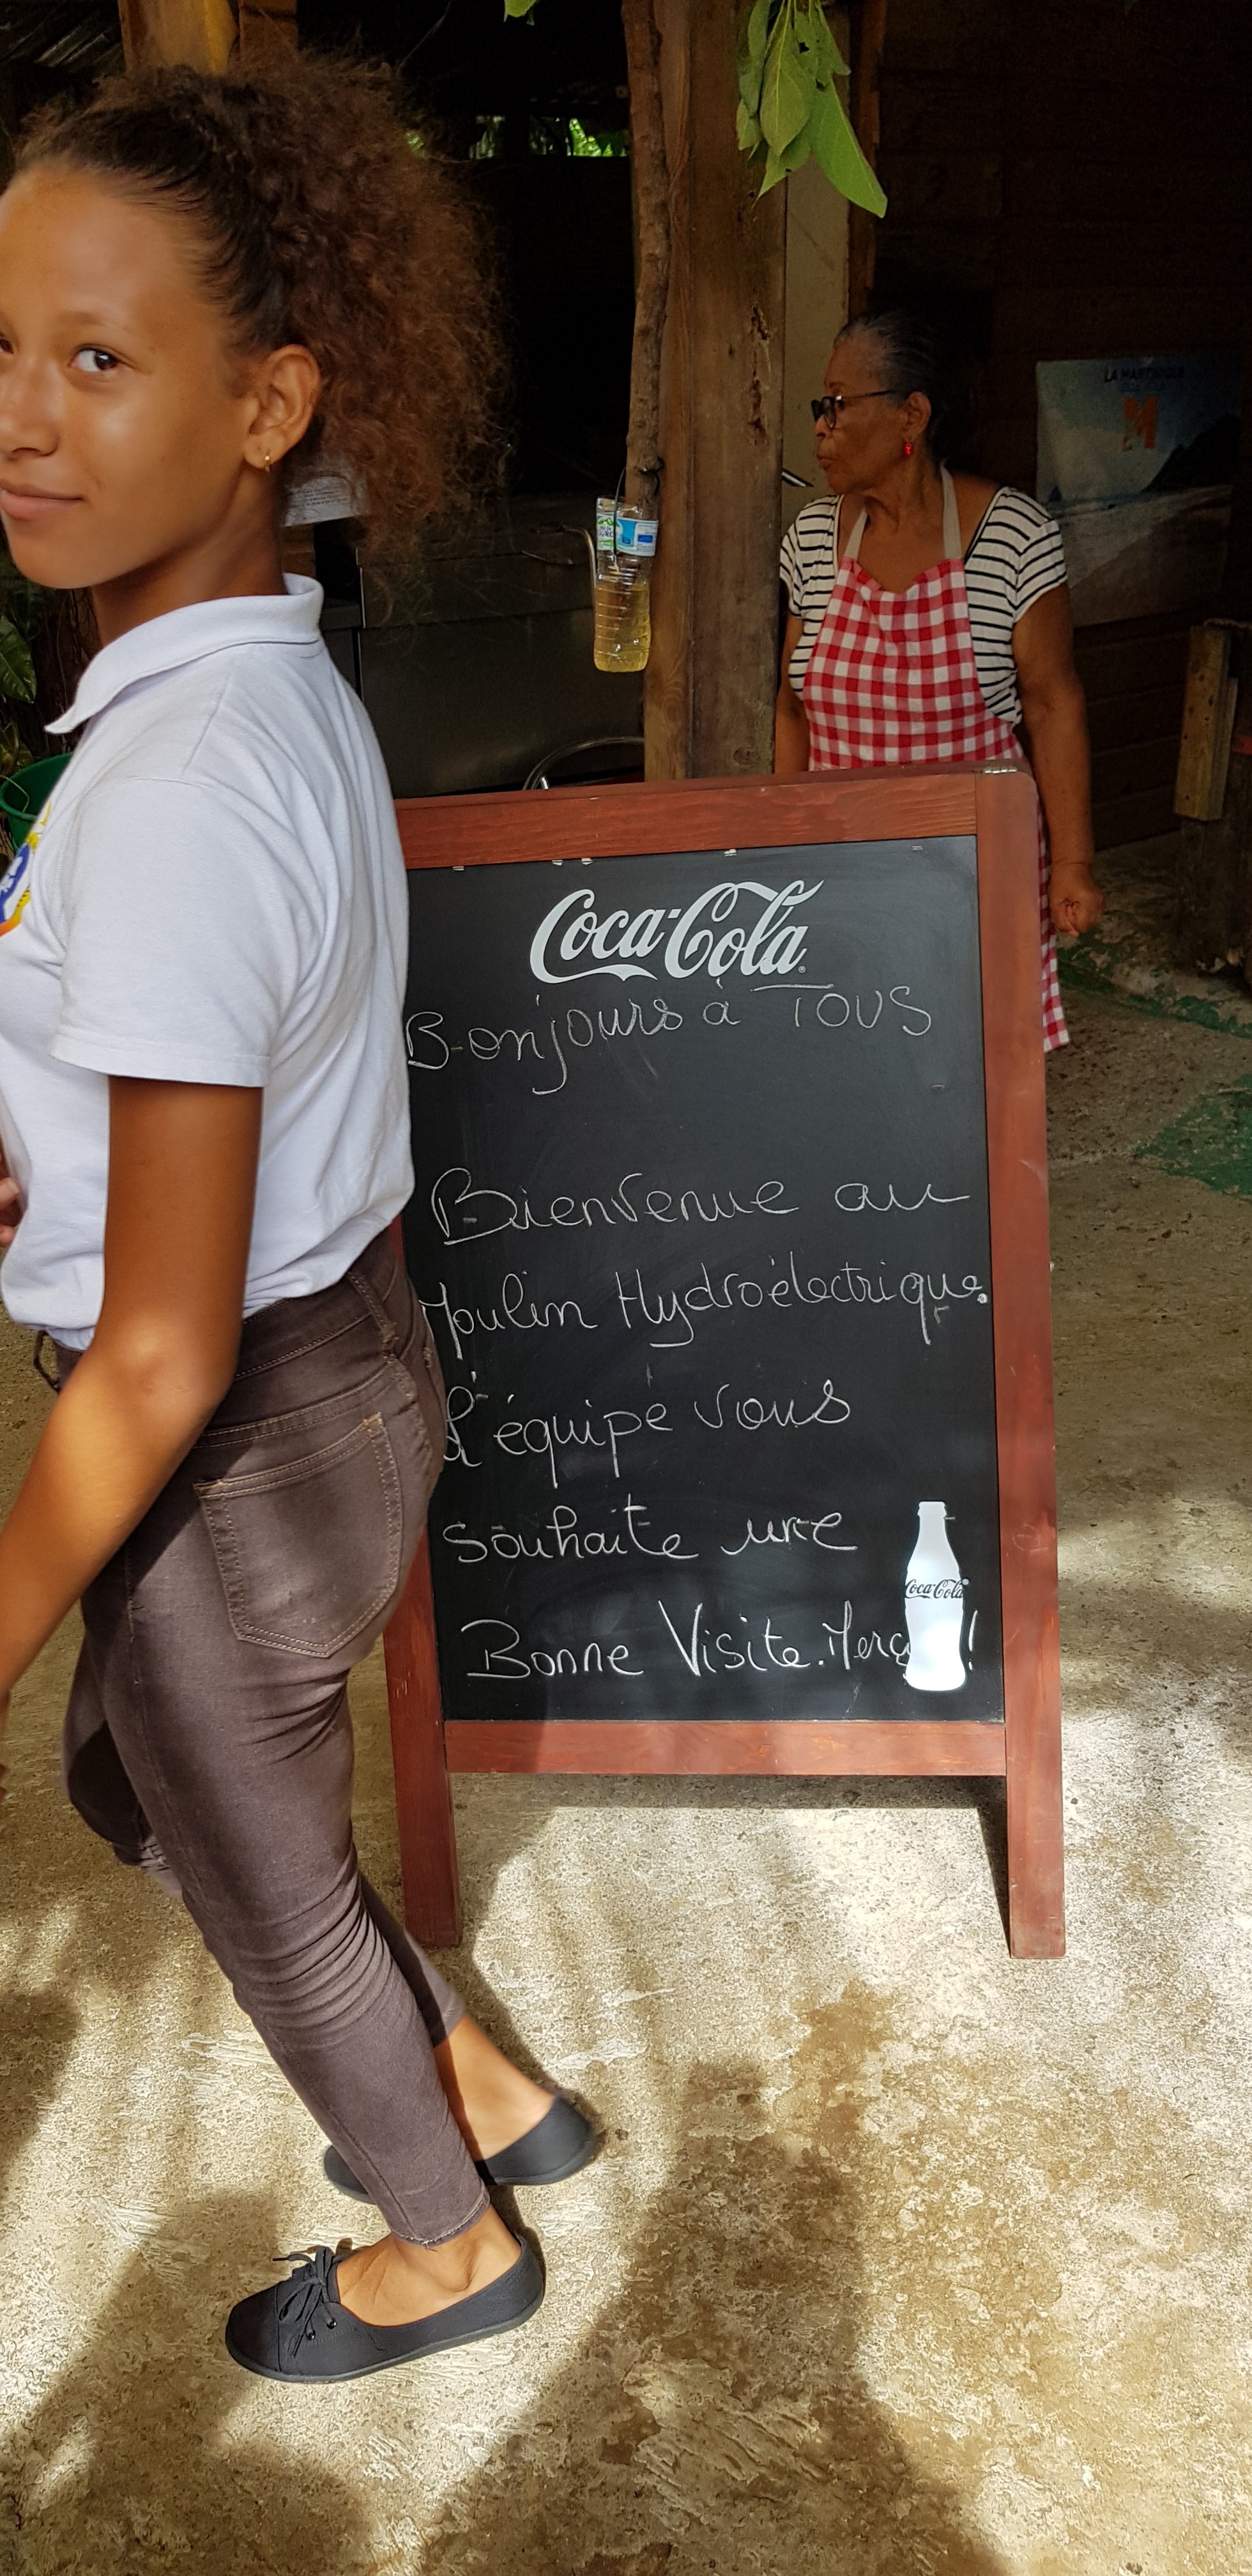 LA MARTINIQUE
Coca-Cola
Bonjours à TOUS
Bienvenue au
Moulin Hydroélectrique.
L'équipe vous
souhaite une
Coca-Cola
Bonne Visite. Merci !